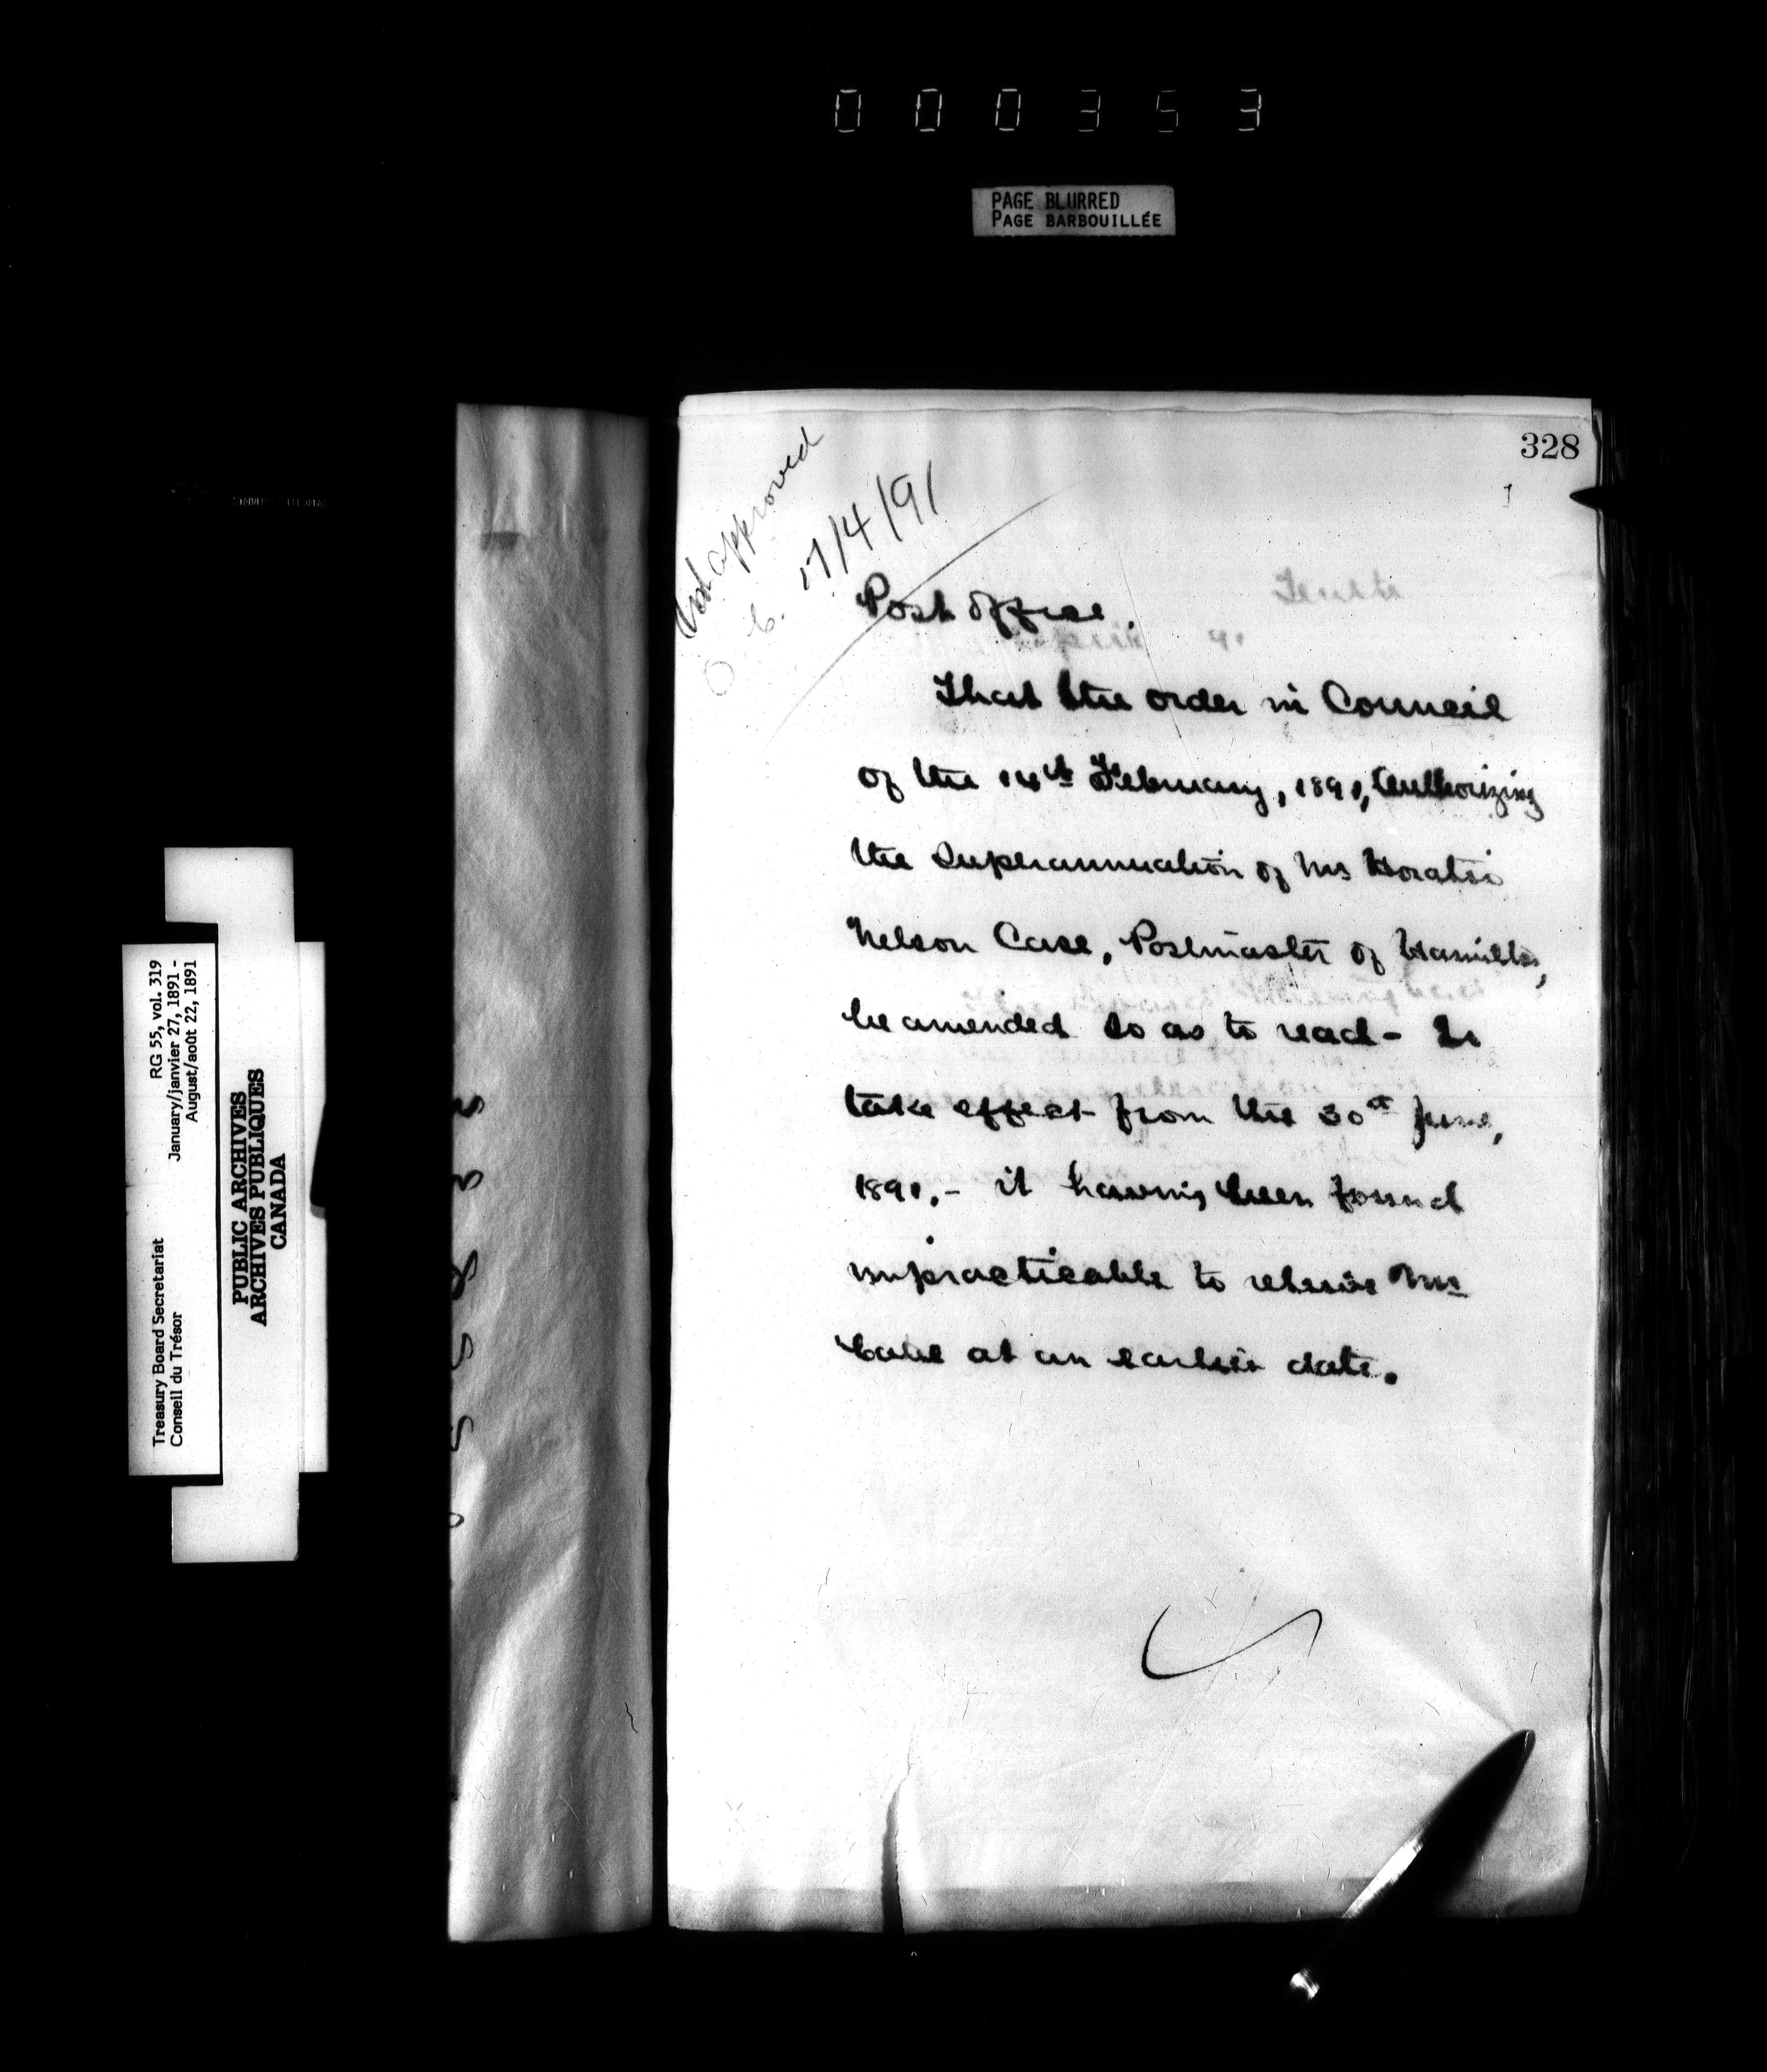 000353
PAGE BLURRED
PAGE BARBOUILLÉE
328
Not approved
O.C. 17/4/91
Post Office.
That the order in Council
of the 14th February, 1891, Authorizing
the Superannuation of Mr Horatio
Nelson Case, Postmaster of Hamilton,
be amended so as to read - to
take effect from the 30th June,
1891, - it having been found
impracticable to relieve Mr
Case at an earlier date.
Treasury Board Secretariat RG 55, vol. 319
Conseil du Trésor January/janvier 27, 1891 -
August/août 22, 1891
PUBLIC ARCHIVES
ARCHIVES PUBLIQUES
CANADA